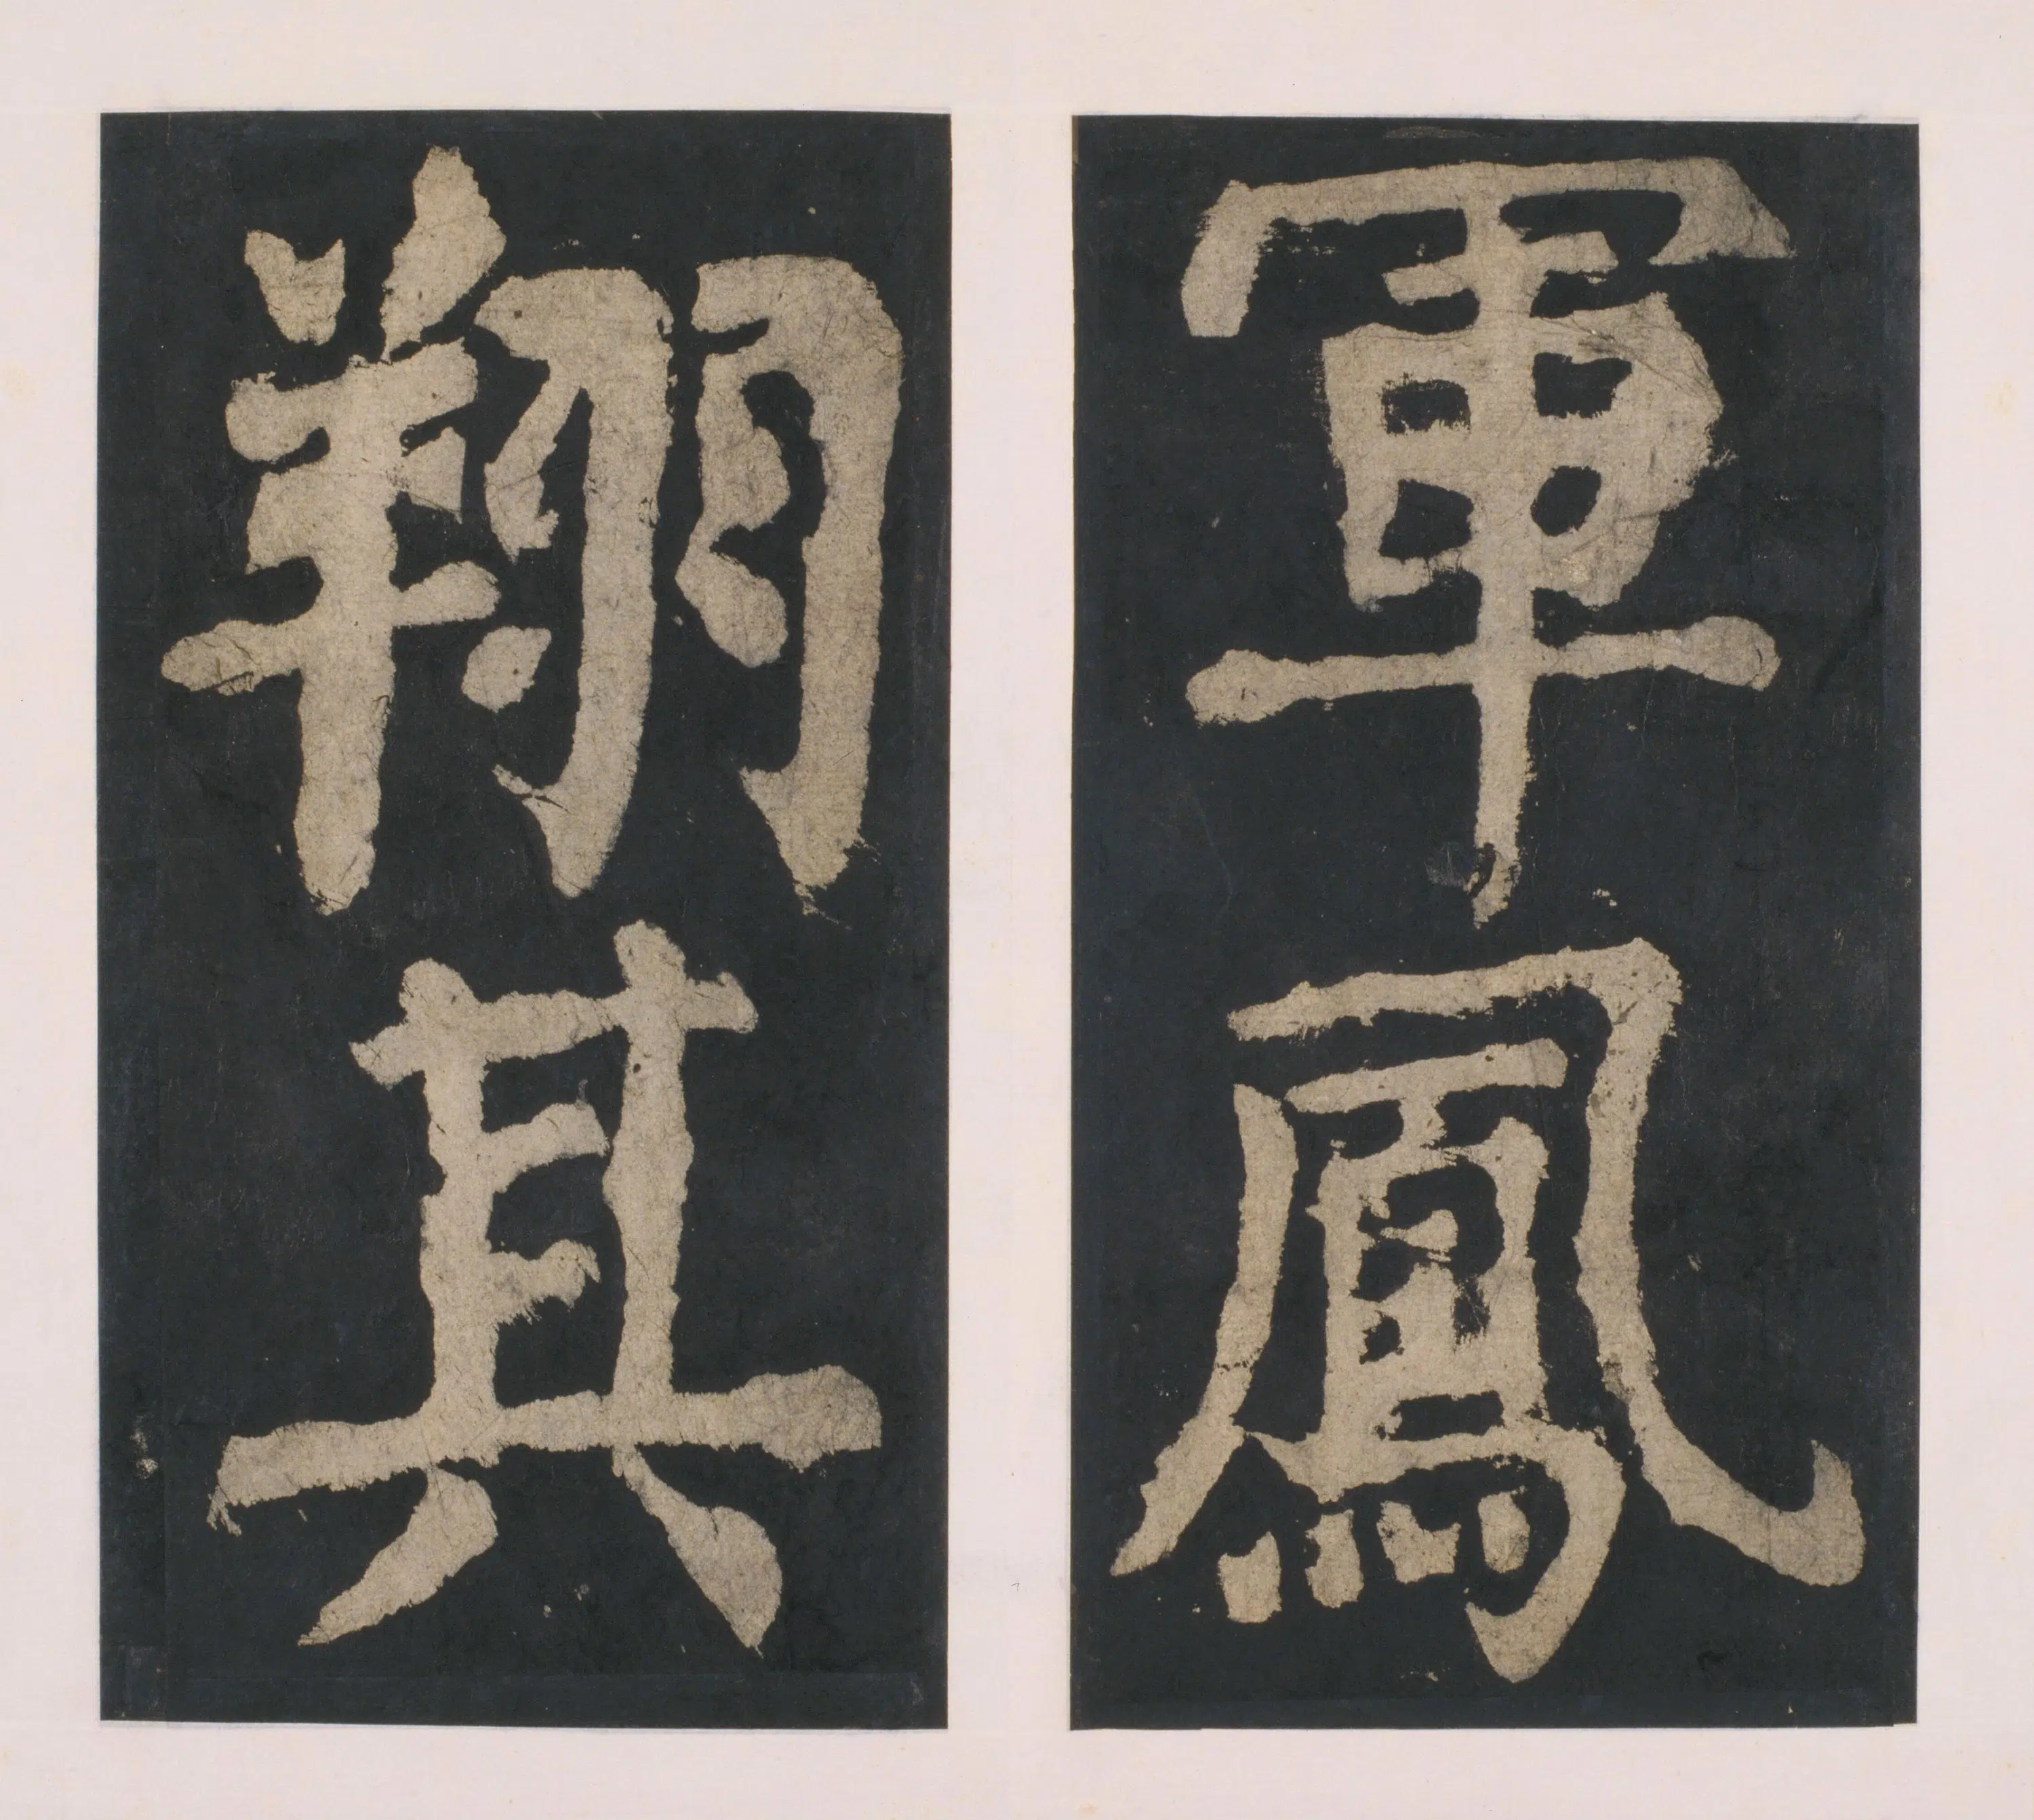 軍鳳
翔其